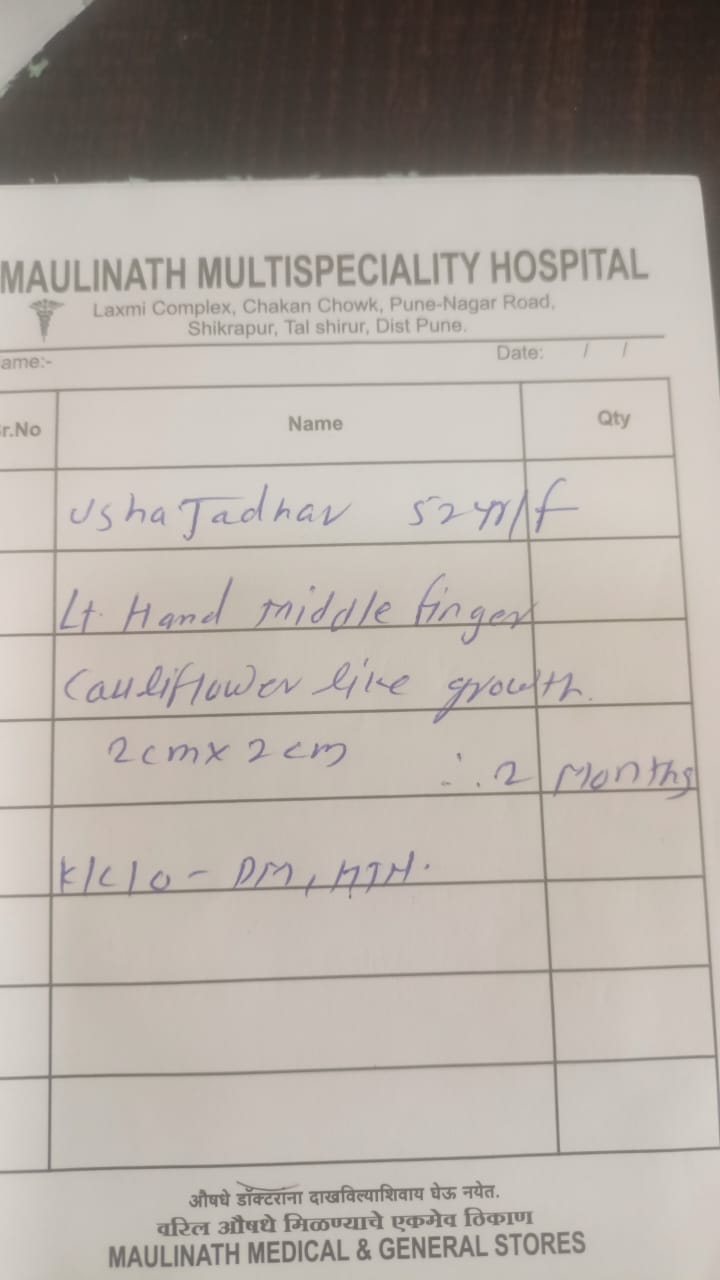 MAULINATH MULTISPECIALITY HOSPITAL
Laxmi Complex, Chakan Chowk, Pune-Nagar Road,
Shikrapur, Tal shirur, Dist Pune.
ame:- Date: / /
r.No Name Qty
Usha Jadhav 52yr/f
Lt. Hand middle finger
Cauliflower like growth.
2cm x 2cm ∴ 2 Months
K/C/O - DM, HTN.
औषधे डॉक्टरांना दाखविल्याशिवाय घेऊ नयेत.
वरिल औषधे मिळण्याचे एकमेव ठिकाण
MAULINATH MEDICAL & GENERAL STORES